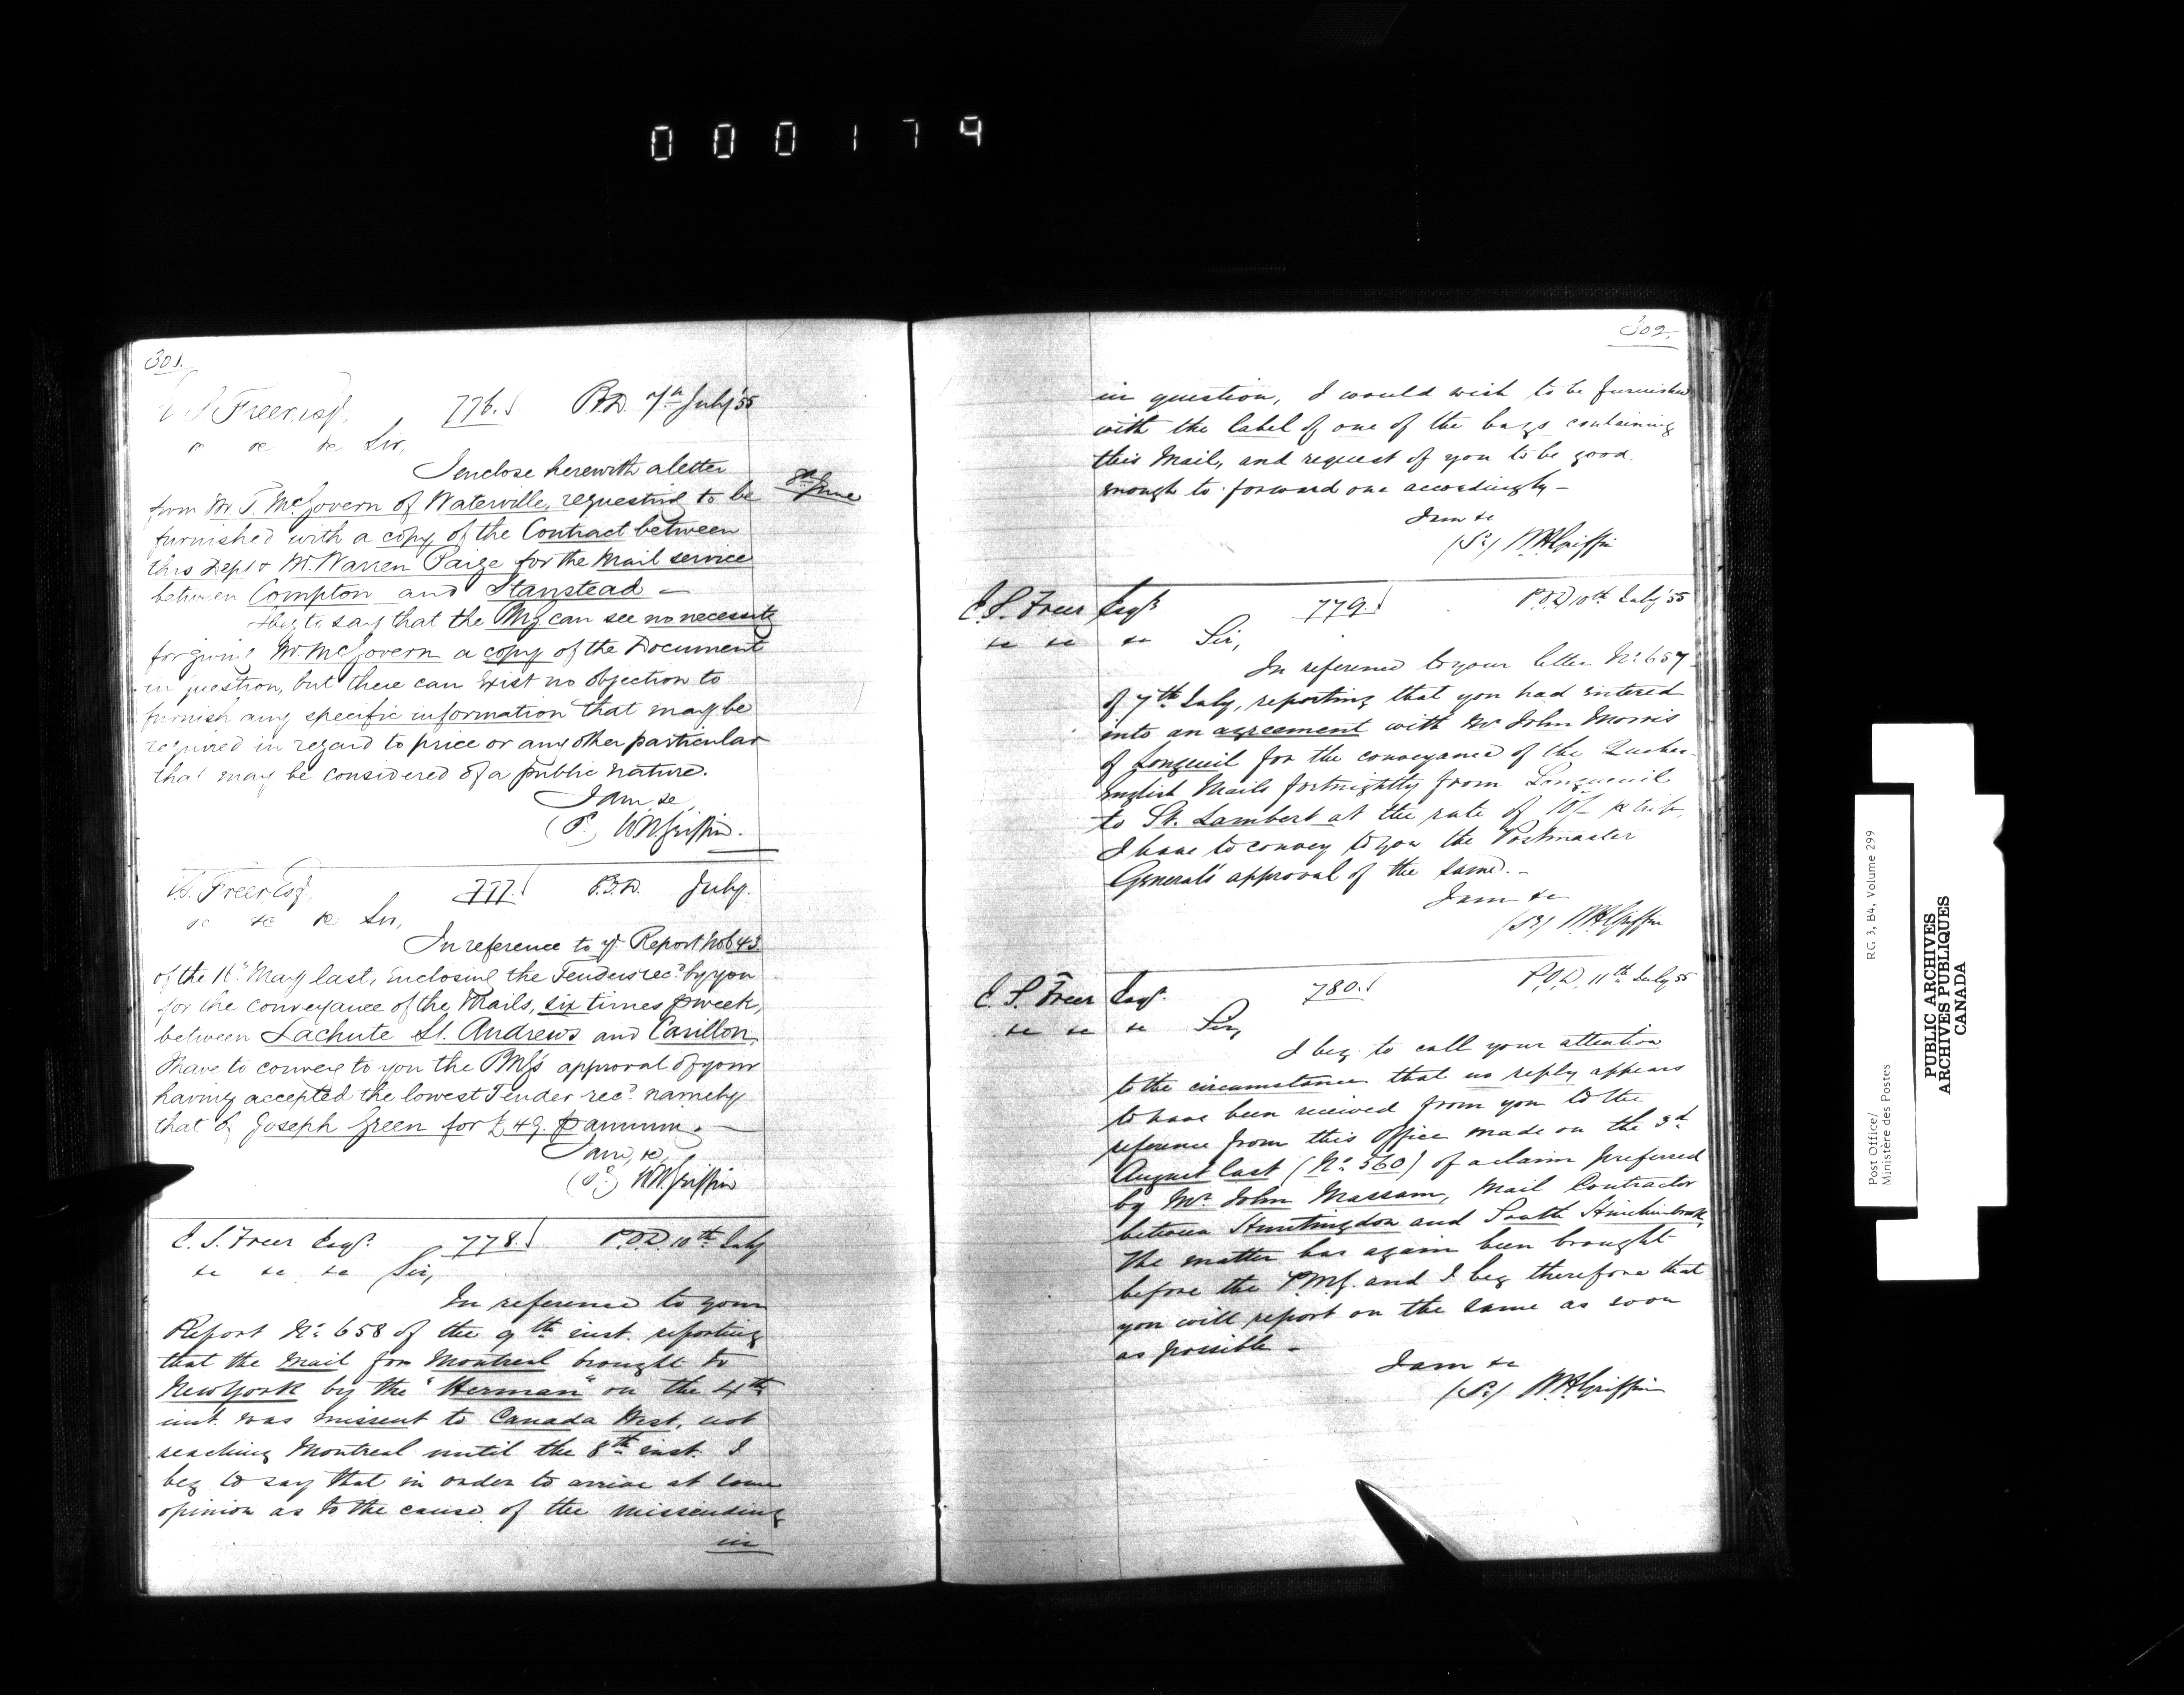 000179
301.
E S Freer Esqr. 776. P.O.D. 7th July '55
&c &c &c Sir,
I enclose herewith a letter
8th June
from Mr T. McGovern of Waterville, requesting to be
furnished with a copy of the Contract between
this Dept & Mr. Warren Paige for the Mail service
between Compton and Stanstead —
I beg to say that the PMG can see no necessity
for giving Mr. McGovern a copy of the Document
in question, but there can exist no objection to
furnish any specific information that may be
required in regard to price or any other particular
that may be considered of a public nature.
I am, &c,
(Sd.) W.H. Griffin.
E S. Freer Esqr. 777. P.O.D. July.
&c &c &c Sir,
In reference to yr. Report No 643.
of the 16th May last, enclosing the Tenders recd. by you
for the conveyance of the Mails, six times p week,
between Lachute St. Andrews and Carillon,
I have to convey to you the PMG's approval of your
having accepted the lowest Tender recd. namely
that of Joseph Green for £49. p annum. —
I am, &c,
(Sd.) W.H. Griffin
E. S. Freer Esqr. 778. P.O.D. 10th July
&c &c &c Sir,
In reference to your
Report No. 658 of the 9th inst. reporting
that the mail for Montreal brought to
New York by the "Herman" on the 4th
inst. was missent to Canada West, not
reaching Montreal until the 8th inst. I
beg to say that in order to arrive at some
opinion as to the cause of the missending
in
302.
in question, I would wish to be furnished
with the label of one of the bags containing
this Mail, and request of you to be good
enough to forward one accordingly —
I am &c
(Sd.) W.H. Griffin
E. S. Freer Esqr. 779. P.O.D. 10th July '55
&c &c &c Sir,
In reference to your letter No. 657
of 7th July, reporting that you had entered
into an agreement with Mr John Morris
of Longeuil for the conveyance of the Quebec
English Mails fortnightly from Longueuil
to St. Lambert at the rate of 10/- p trip,
I have to convey to you the Postmaster
General's approval of the same. —
I am &c
(Sd) W.H. Griffin
E. S. Freer Esqr. 780. P.O.D. 11th July 55
&c &c &c Sir,
I beg to call your attention
to the circumstance that no reply appears
to have been received from you to the
reference from this Office made on the 3d
August last (No. 560) of a claim preferred
by Mr. John Massam, Mail Contractor
between Huntingdon and South Hinchinbrook,
The matter has again been brought
before the P.M.G. and I beg therefore that
you will report on the same as soon
as possible —
I am &c
(Sd.) W.H. Griffin
Post Office/
Ministère des Postes
RG 3, B4, Volume 299
PUBLIC ARCHIVES
ARCHIVES PUBLIQUES
CANADA